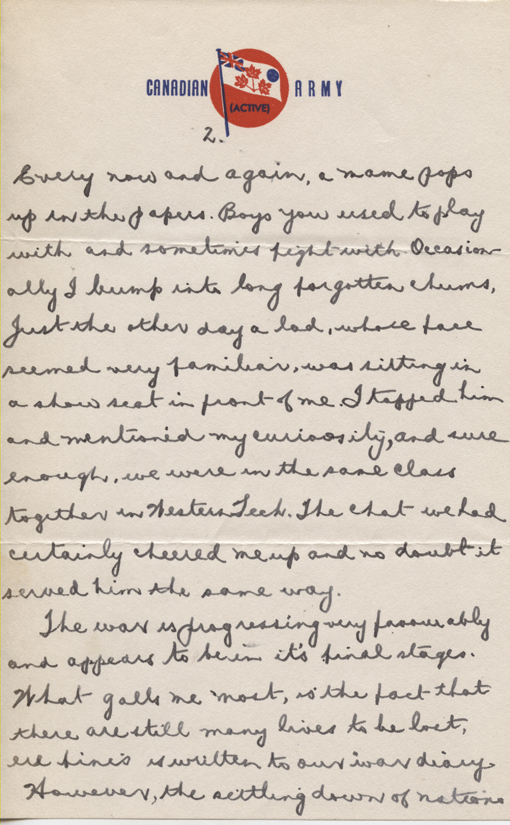 CANADIAN (ACTIVE) ARMY
2.
Every now and again, a name pops
up in the papers. Boys you used to play
with and sometimes fight with. Occasion-
ally I bump into long forgotten chums,
Just the other day a lad, whose face
seemed very familiar, was sitting in
a show seat in front of me. I tapped him
and mentioned my curiosity, and sure
enough, we were in the same class
together in Western Tech. The chat we had
certainly cheered me up and no doubt it
served him the same way.
The war is progressing very favourably
and appears to be in it's final stages.
What galls me most, is the fact that
there are still many lives to be lost,
ere finis is written to our war diary.
However, the settling down of nations